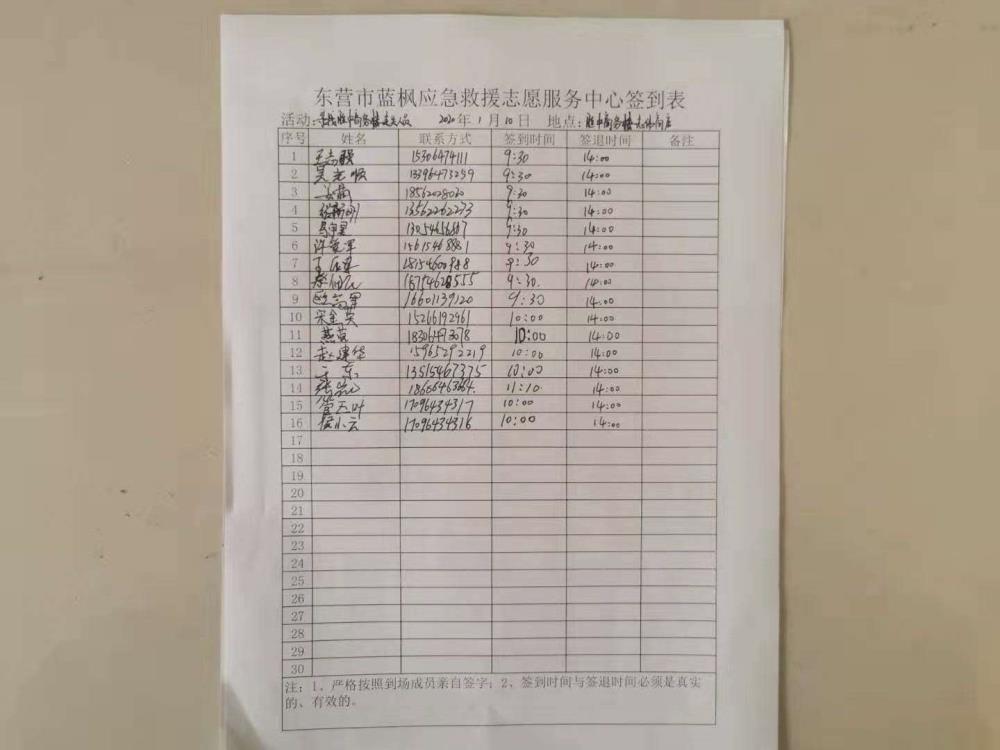 东营市蓝枫应急救援志愿服务中心签到表
活动: 2020年1月10日 地点:
序号 姓名 联系方式 签到时间 签退时间 备注
1 王志强 15306474111 9:30 14:00
2 吴光顺 13396473259 9:30 14:00
3 18562028020 9:30 14:00
4 13562262273 9:30 14:00
5 13054656867 9:30 14:00
6 15615468881 9:30 14:00
7 18154600988 9:30 14:00
8 9:30. 14:00
9 16601139120 9:30 14:00
10 宋金英 15266192961 10:00 14:00
11 燕萍 18306473078 10:00 14:00
12 赵建华 15965292219 10:00 14:00
13 王东 13515467375 10:00 14:00
14 11:10 14:00
15 17096434317 10:00 14:00
16 侯小云 17096434316 10:00 14:00
17
18
19
20
21
22
23
24
25
26
27
28
29
30
注:1、严格按照到场成员亲自签字;2、签到时间与签退时间必须是真实
的、有效的。